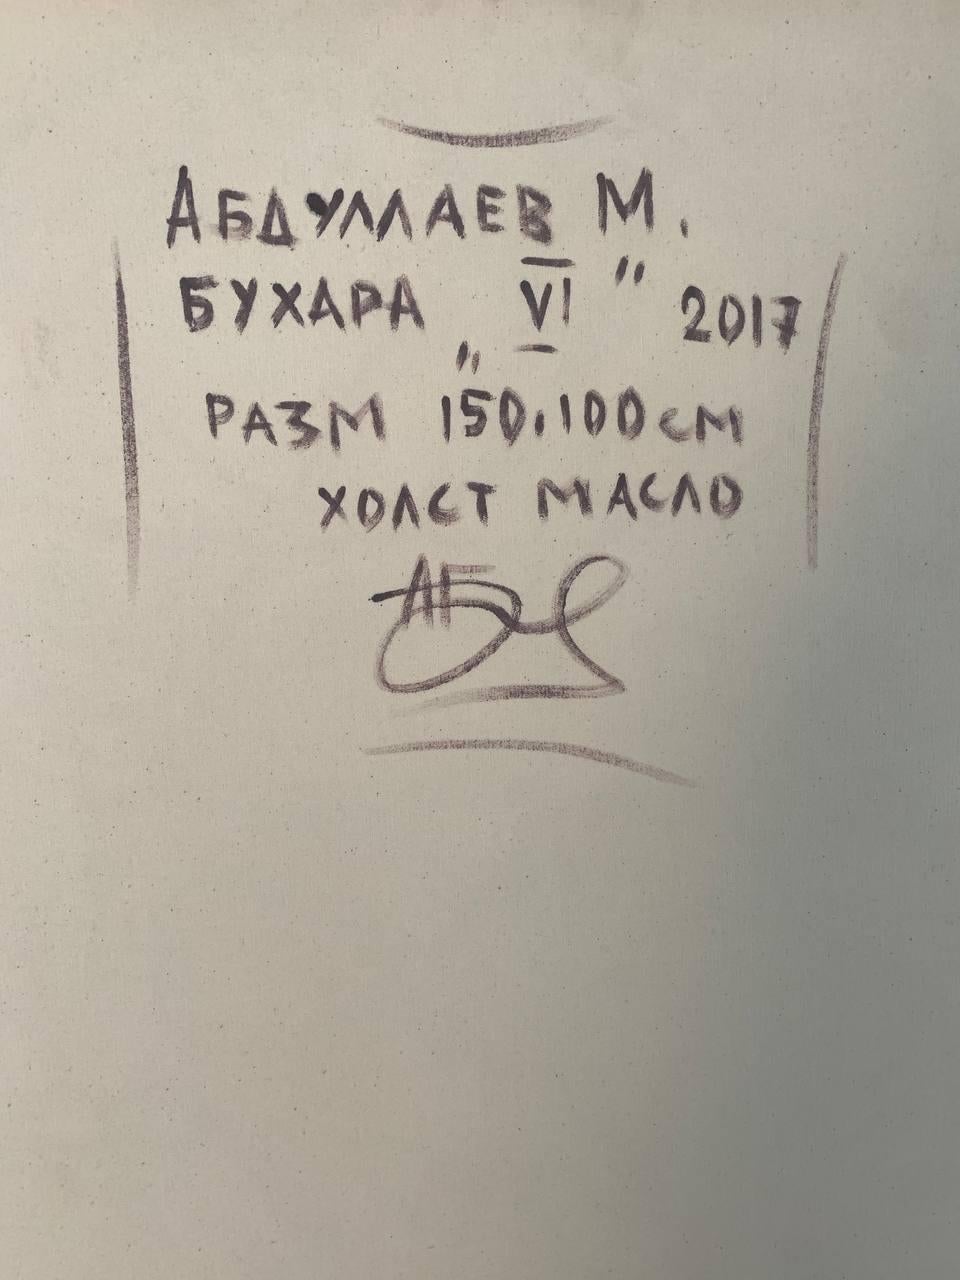 АБДУЛЛАЕВ М.
БУХАРА „VI" 2017
РАЗМ 150.100см
ХОЛСТ МАСЛО
АБ